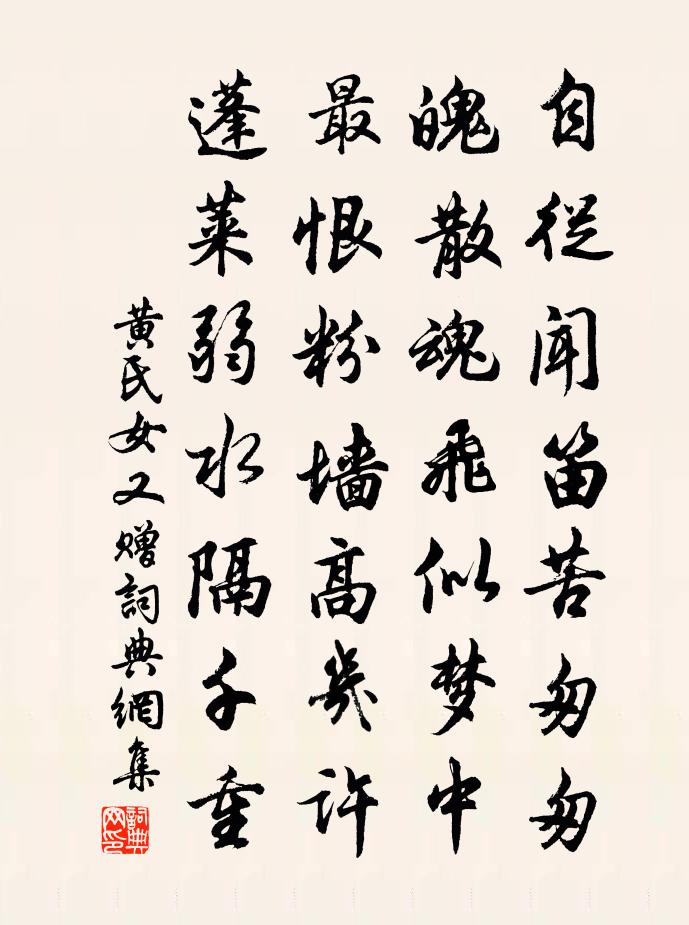 自從闻笛苦匆匆
魄散魂飛似梦中
最恨粉墙高幾許
蓬莱弱水隔千重
黄氏女又赠詞典網集
詞典
网印